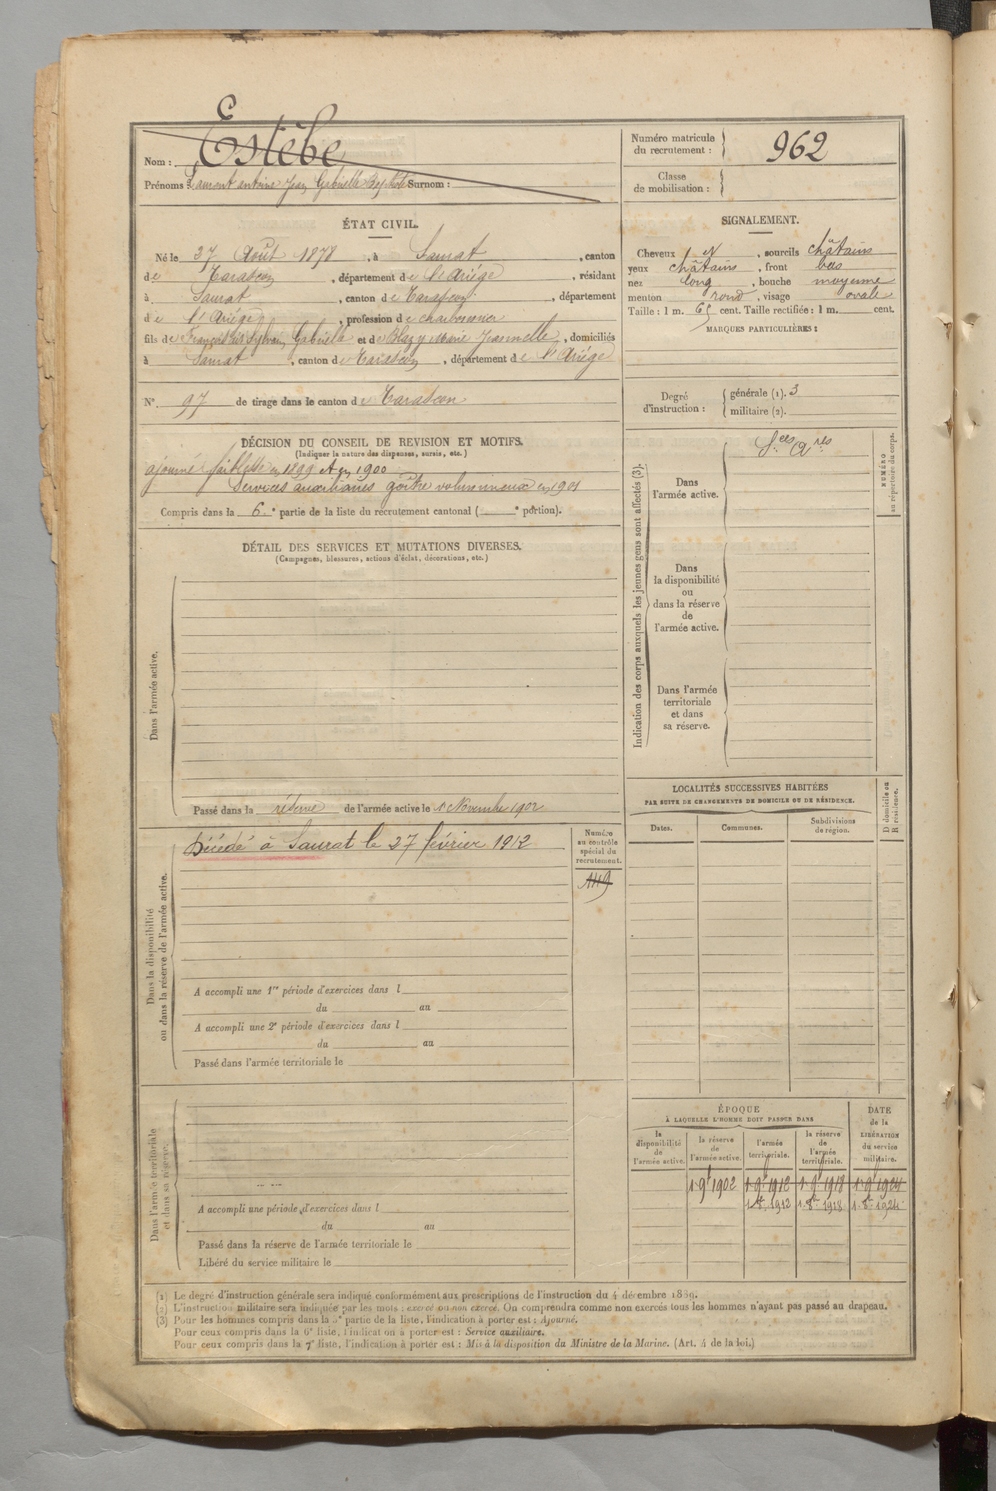 Nom : Estèbe
Prénoms : Laurent antoine Jean Gabrielle Baptiste Surnom :
Numéro matricule
du recrutement :
962
Classe
de mobilisation :
ÉTAT CIVIL.
Né le 27 Août 1878, à Saurat, canton
de Tarascon, département de l'Ariége, résidant
à Saurat, canton de Tarascon, département
de l'Ariége, profession de charbonnier
fils de François Sylvain Gabrielle et de Blazy Marie Jeannette, domiciliés
à Saurat, canton de Tarascon, département de l'Ariége
N° 97 de tirage dans le canton de Tarascon
SIGNALEMENT.
Cheveux et, sourcils châtains
yeux châtains, front bas
nez long, bouche moyenne
menton rond, visage ovale
Taille : 1 m. 65 cent. Taille rectifiée : 1 m. cent.
MARQUES PARTICULIÈRES :
Degré
d'instruction :
générale (1). 3
militaire (2).
DÉCISION DU CONSEIL DE REVISION ET MOTIFS.
(Indiquer la nature des dispenses, sursis, etc.)
ajourné faiblesse en 1899 et en 1900
Services auxiliaires goître volumineux en 1901
Compris dans la 6e partie de la liste du recrutement cantonal ( e portion).
DÉTAIL DES SERVICES ET MUTATIONS DIVERSES.
(Campagnes, blessures, actions d'éclat, décorations, etc.)
Dans l'armée active.
Passé dans la réserve de l'armée active le 1 Novembre 1902
Dans la disponibilité
ou dans la réserve de l'armée active.
Décédé à Saurat le 27 février 1912
Numéro
au contrôle
spécial du
recrutement.
A accompli une 1re période d'exercices dans l
du au
A accompli une 2e période d'exercices dans l
du au
Passé dans l'armée territoriale le
Dans l'armée territoriale
et dans sa réserve.
A accompli une période d'exercices dans l
du au
Passé dans la réserve de l'armée territoriale le
Libéré du service militaire le
Indication des corps auxquels les jeunes gens sont affectés (3).
Dans
l'armée active.
Sces Ares
NUMÉRO
au répertoire du corps.
Dans
la disponibilité
ou
dans la réserve
de
l'armée active.
Dans l'armée
territoriale
et dans
sa réserve.
LOCALITÉS SUCCESSIVES HABITÉES
PAR SUITE DE CHANGEMENTS DE DOMICILE OU DE RÉSIDENCE.
Dates.
Communes.
Subdivisions
de région.
D domicile ou
R résidence.
ÉPOQUE
À LAQUELLE L'HOMME DOIT PASSER DANS
la
disponibilité
de
l'armée active.
la réserve
de
l'armée active.
l'armée
territoriale.
la réserve
de
l'armée
territoriale.
DATE
de la
LIBÉRATION
du service
militaire.
1 9bre 1902 1 9bre 1912 1 9bre 1918 1 9bre 1924
1 8bre 1912 1 8bre 1918 1 8bre 1924
(1) Le degré d'instruction générale sera indiqué conformément aux prescriptions de l'instruction du 4 décembre 1889.
(2) L'instruction militaire sera indiquée par les mots : exercé ou non exercé. On comprendra comme non exercés tous les hommes n'ayant pas passé au drapeau.
(3) Pour les hommes compris dans la 5e partie de la liste, l'indication à porter est : Ajourné.
Pour ceux compris dans la 6e liste, l'indication à porter est : Service auxiliaire.
Pour ceux compris dans la 7e liste, l'indication à porter est : Mis à la disposition du Ministre de la Marine. (Art. 4 de la loi.)